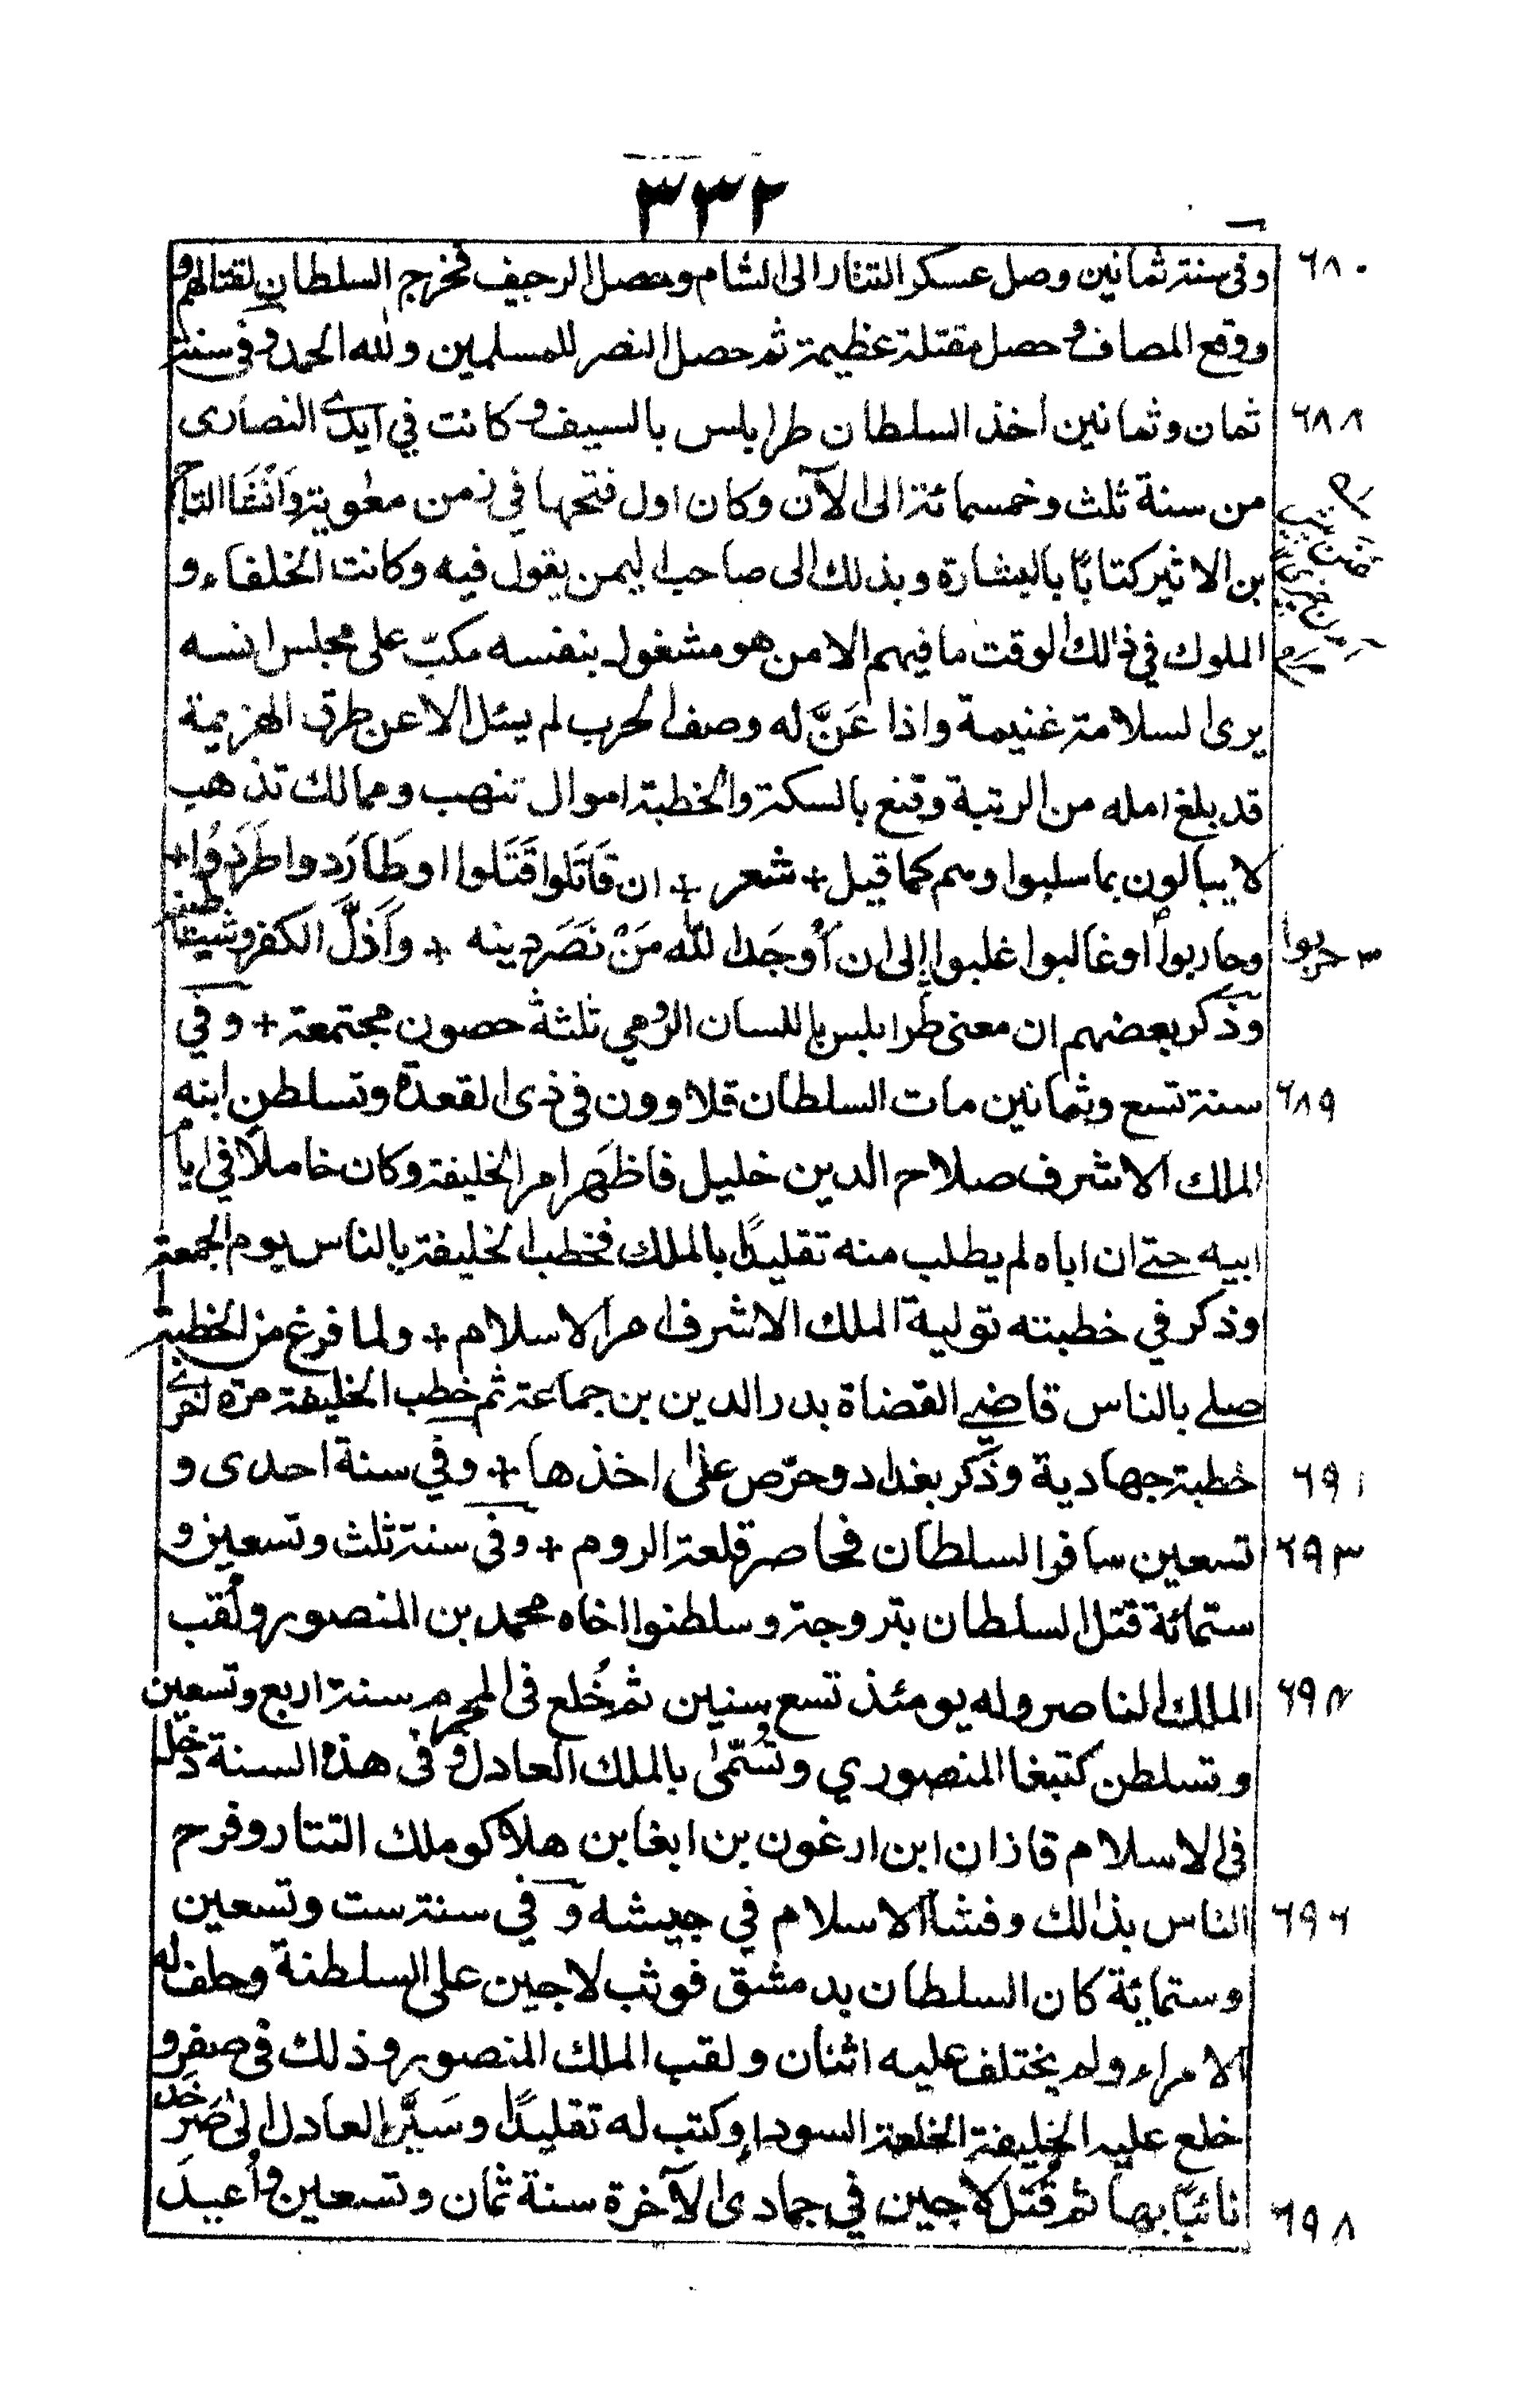 ٣٣٢
وفى سنة ثمانين وصل عسكر التتار الى الشام وحصل الرجيف فخرج السلطان لقتالهم و
ووقع المصاف وحصل مقتلة عظيمة ثم حصل النصر للمسلمين ولله الحمد وفى سنة
ثمان وثمانين اخذ السلطان طرابلس بالسيف وكانت في ايدى النصارى
من سنة ثلث وخمسمائة الى الآن وكان اول فتحها في زمن معوية وَانْشَا التاج
بن الاثير كتابًا بالبشارة وبذلك الى صاحب اليمن يقول فيه وكانت الخلفاء و
الملوك في ذالك الوقت ما فيهم الا من هو مشغول بنفسه مكبّ على مجلس انسه
يرى السلامة غنيمة واذا عَنَّ له وصف الحرب لم يسئل الا عن طرق الهزيمة
قد بلغ امله من الرتبة وقنع بالسكة والخطبة اموال تنهب وممالك تذهب
لا يبالون بما سلبوا وهم كما قيل + شعر + ان قَاتَلوا قَتَلوا او طَارَدوا طَرَدُوا +
وحاربوا او غالبوا غلبوا إلى ان أَوْجَدَ الله مَنْ نَصَرَ دينه + وأَذَلَّ الكفر وشيتاطينه
وذكر بعضهم ان معنى طرابلس باللسان الرومي ثلثة حصون مجتمعة + وفي
سنة تسع وثمانين مات السلطان قلاوون فى ذى القعدة وتسلطن ابنه
الملك الاشرف صلاح الدين خليل فاظهر امر الخليفة وكان خاملاً في ايام
ابيه حتى ان اباه لم يطلب منه تقليدًا بالملك فخطب الخليفة بالناس يوم الجمعة
وذكر في خطبته تولية الملك الاشرف امر الاسلام + ولما فرغ من الخطبة
صلے بالناس قاضے القضاة بدر الدين بن جماعة ثم خطب الخليفة مرة اخرے
خطبة جهادية وذكر بغداد وحرّص على اخذها + وفي سنة احدى و
تسعين سافر السلطان فحاصر قلعة الروم + وفى سنة ثلث وتسعين و
ستمائة قتل السلطان بتروجة وسلطنوا اخاه محمد بن المنصور ولُقب
الملك الناصر وله يومئذ تسع سنين ثم خُلع فى المحرم سنة اربع وتسعين
وتسلطن كتبغا المنصوري وتُسُمّى بالملك العادل وفى هذه السنة دخل
فى الاسلام قازان ابن ارغون بن ابغا بن هلاكو ملك التتار وفرح
الناس بذالك وفشا الاسلام في جيشه و فى سنة ست وتسعين
وستمائة كان السلطان بدمشق فوثب لاجين على السلطنة وحلف له
الامراء ولم يختلف عليه اثنان ولقب الملك المنصور وذلك فى صفر و
خلع عليه الخليفة الخلعة السوداء وكتب له تقليدًا وسَيَّر العادل الى صَرخد
نائبًا بها ثم قُتل لاجين في جمادى الآخرة سنة ثمان وتسعين وأُعيد
٦٨٠
٦٨٨
٣ حربوا
٦٨٩
٦٩١
٦٩٣
٦٩٤
٦٩٦
٦٩٨